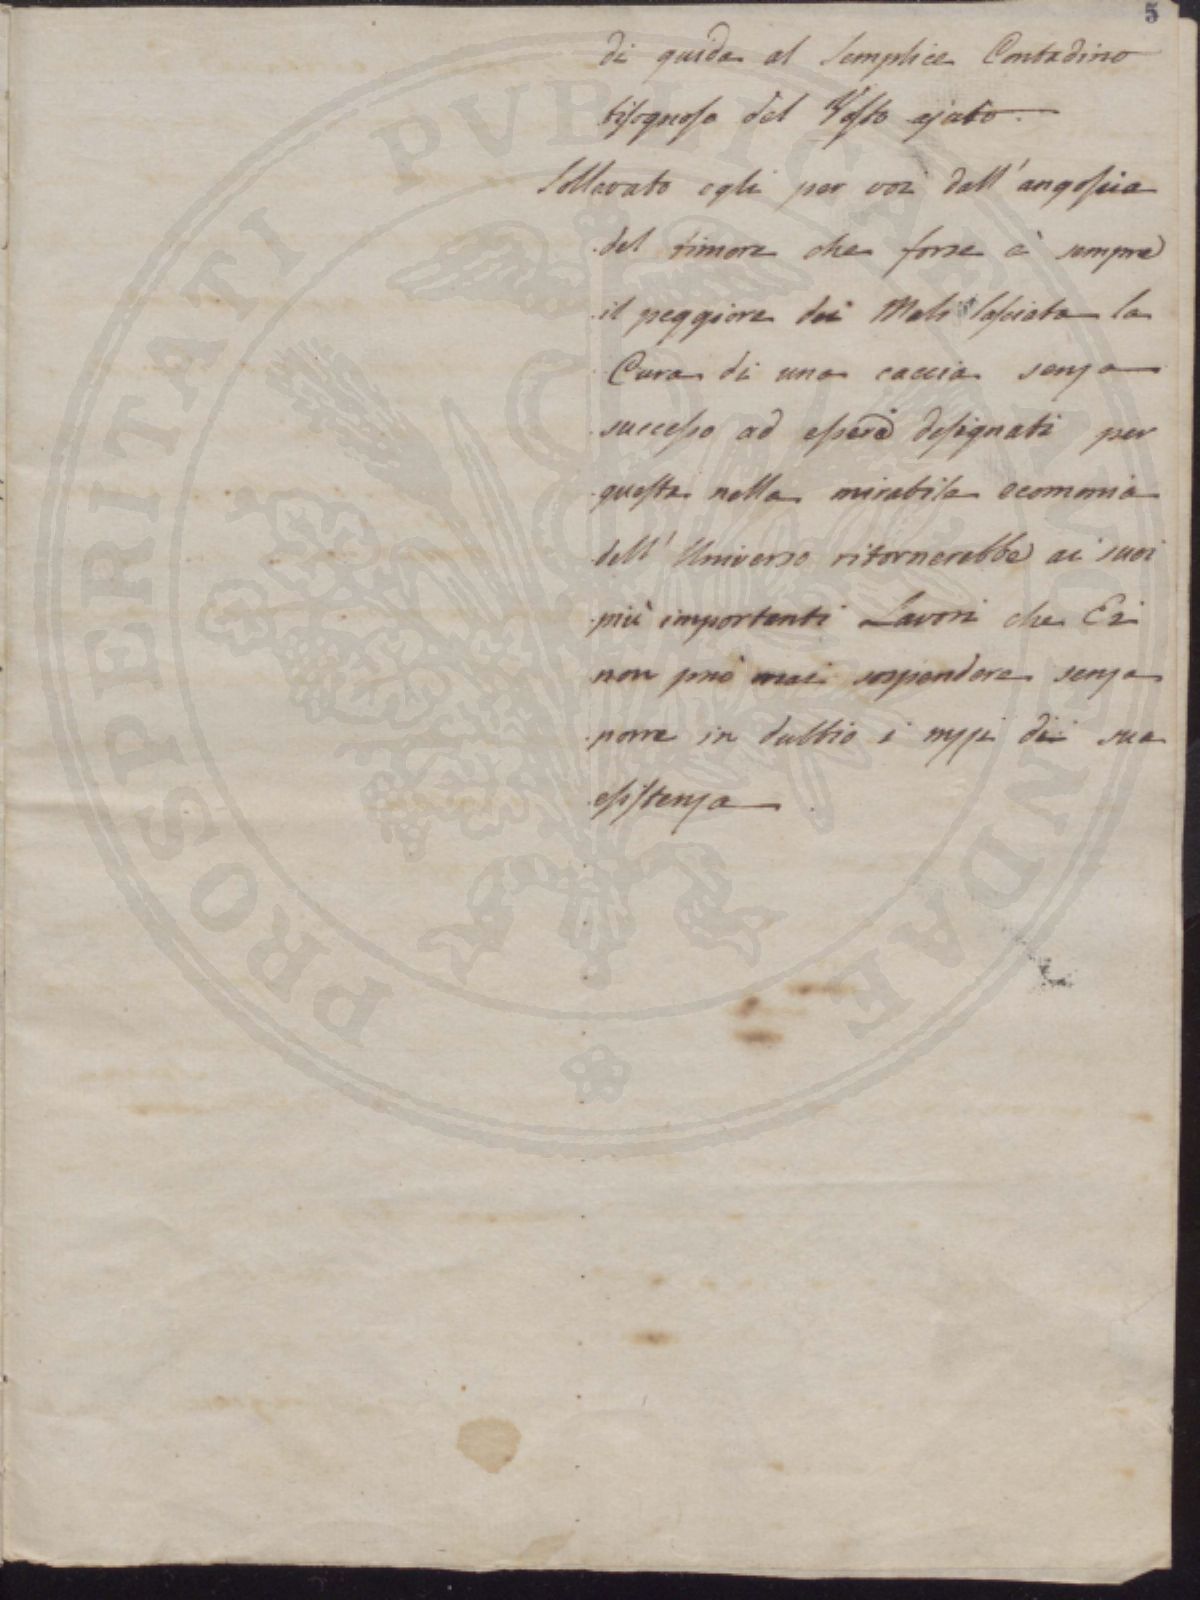 5
di guida al semplice Contadino
bisognoso del Vosto ajuto.
Sollevato egli per voi dall'angoscia
del timore che forse è sempre
il peggiore dei Mali lasciata la
Cura di una caccia senza
successo ad esseri designati per
questa nella mirabile economia
dell'Universo ritornerebbe ai suoi
più importanti Lavori che Ei
non può mai sospendere senza
porre in dubbio i mezzi di sua
esistenza
PROSPERITATI PVBLICAE AVGENDAE